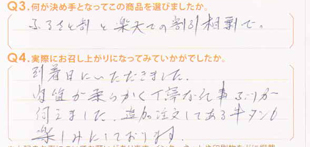 Q3.何が決め手となってこの商品を選びましたか。
ふるさと割と楽天での割引相乗で。
Q4.実際にお召し上がりになってみていかがでしたか。
到着日にいただきました。
肉質が柔らかく丁寧な仕事ぶりが
伺えました。追加注文してある牛タンも
楽しみにしております。